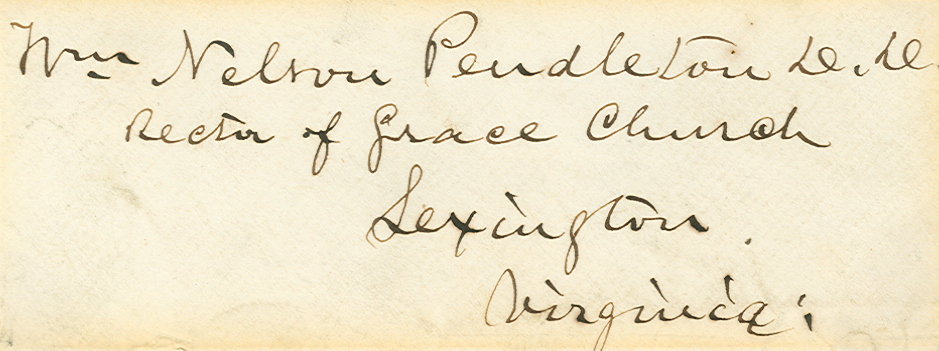 Wm Nelson Pendleton D.D.
Rector of Grace Church
Lexington.
Virginia: